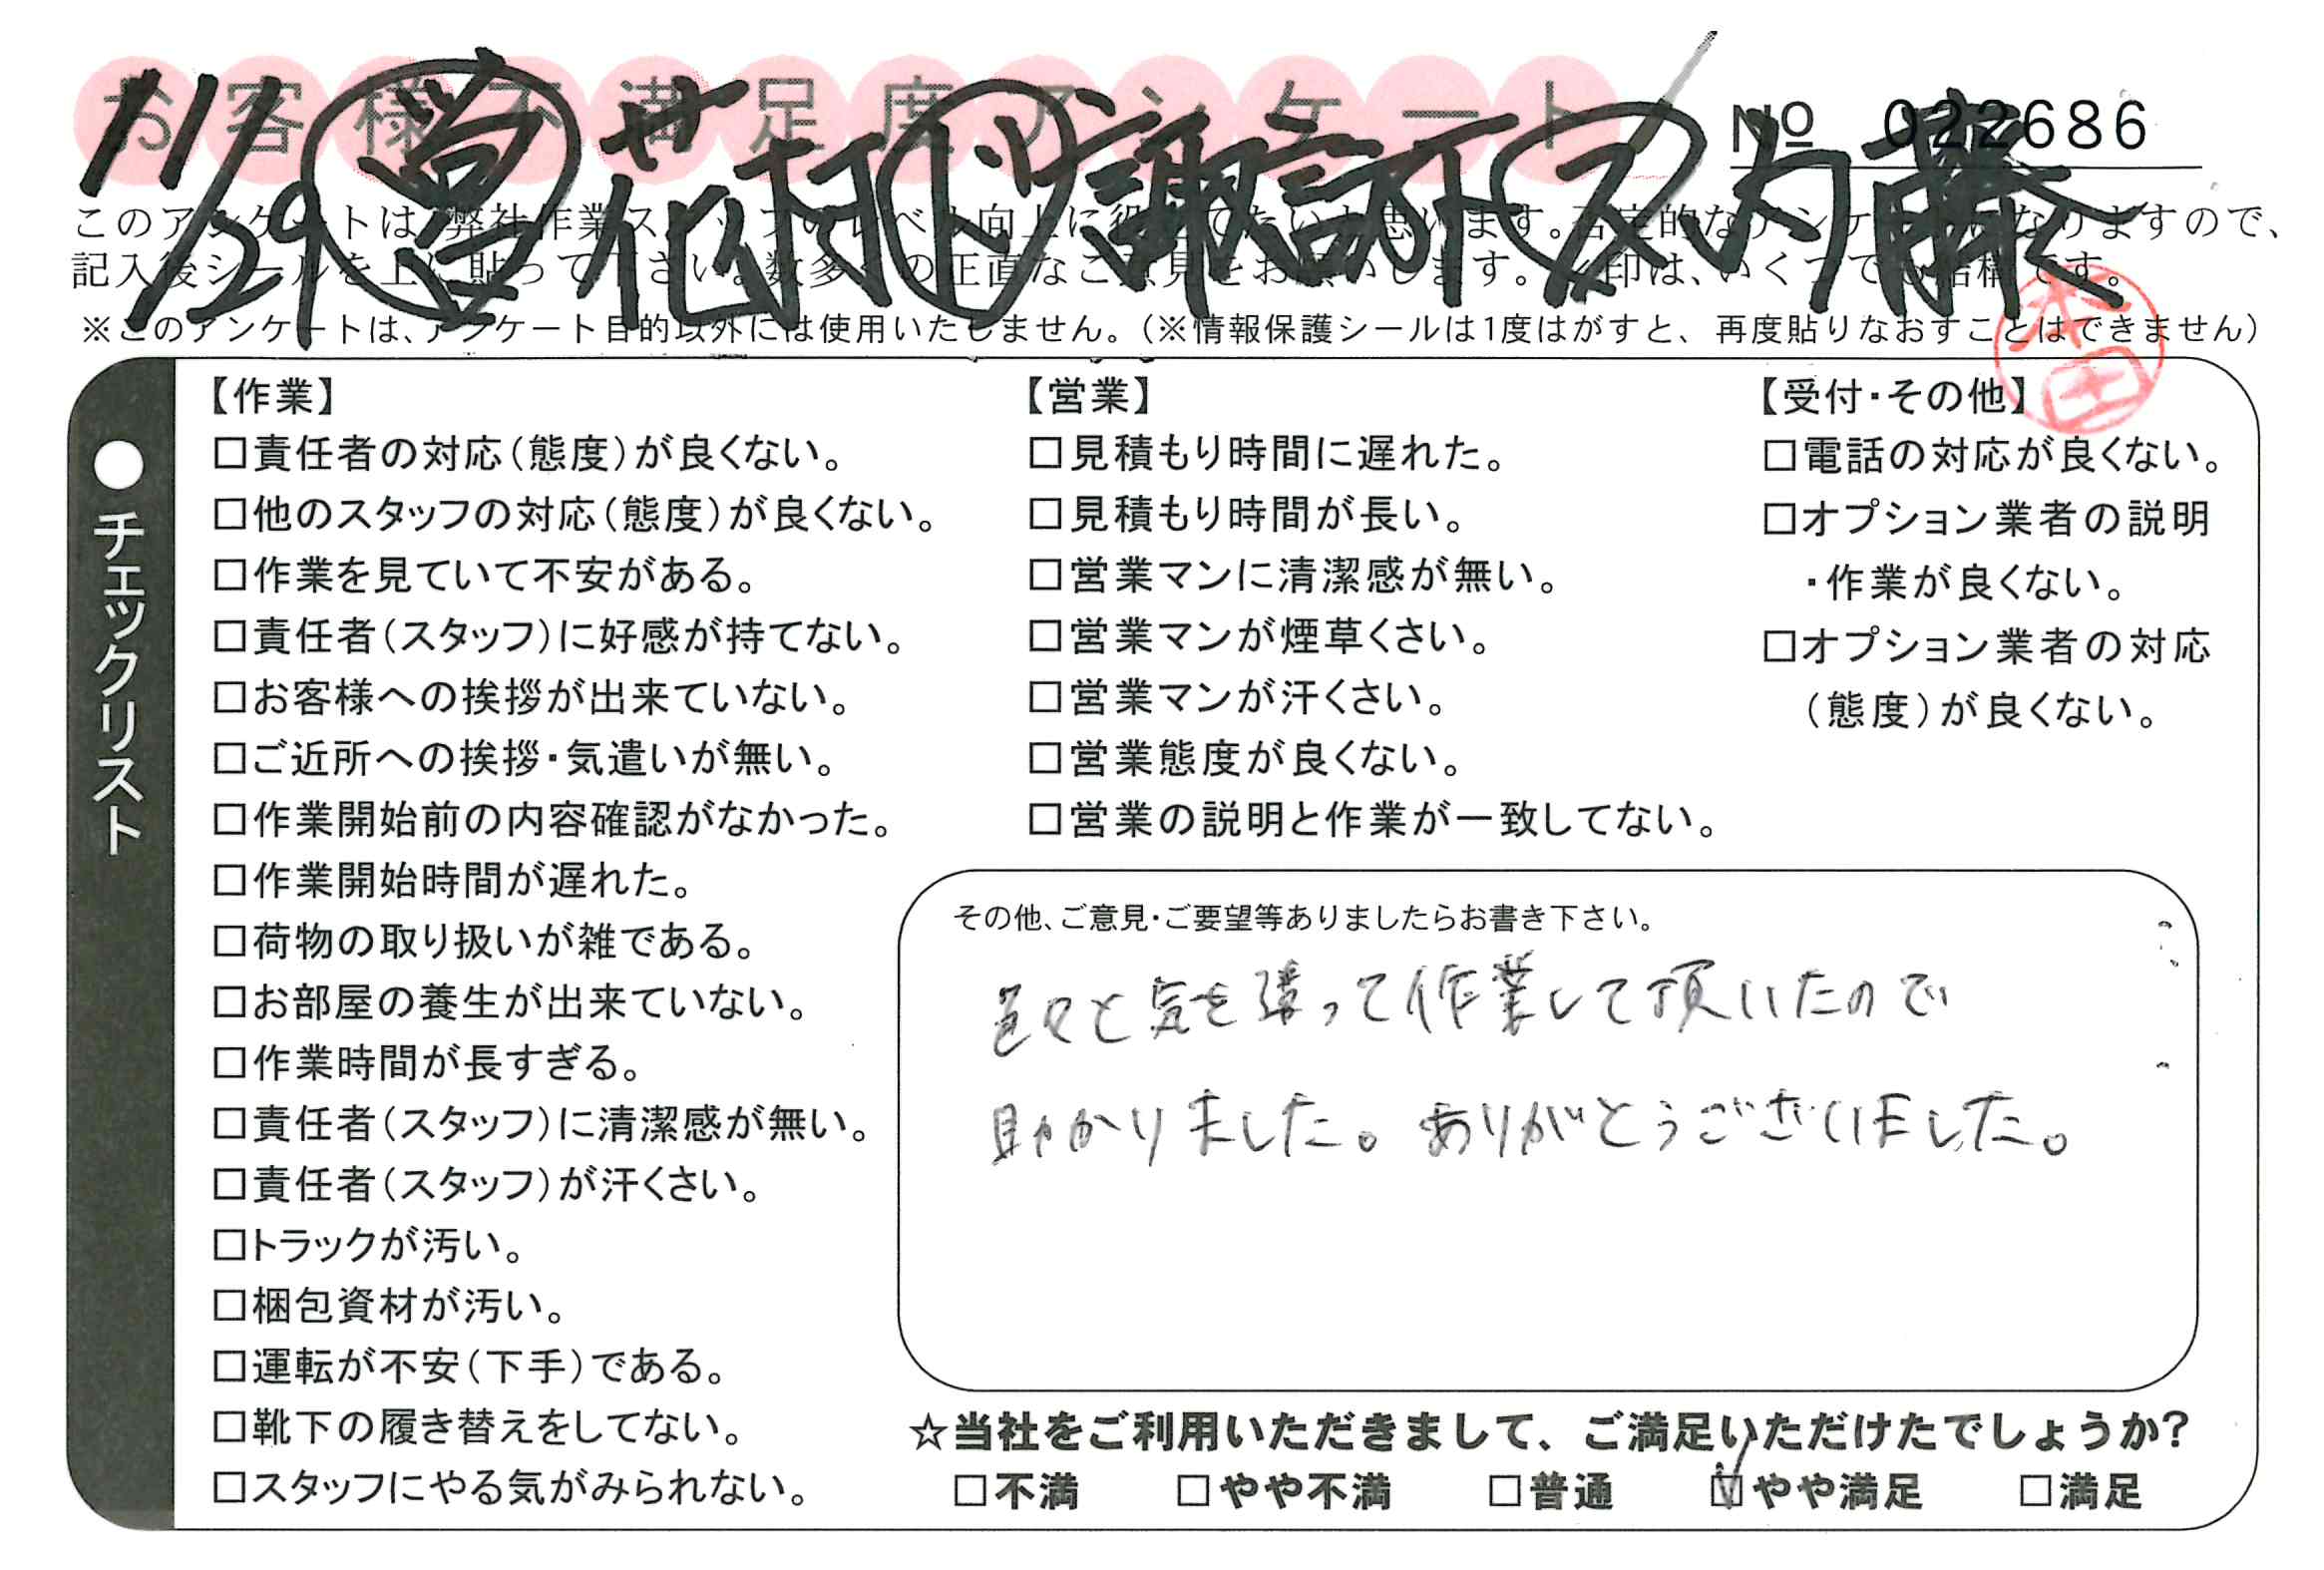 お客様不満足度アンケート
No 022686
11/29 営 花村 ド 諏訪 ス 内藤
このアンケートは、弊社作業スタッフのレベル向上に役立てたいと思います。否定的なアンケートになりますので、
記入後シールを上に貼って下さい。数多くの正直なご意見をお願いします。✓印は、いくつでも結構です。
※このアンケートは、アンケート目的以外には使用いたしません。（※情報保護シールは1度はがすと、再度貼りなおすことはできません）
本田
●チェックリスト
【作業】
□責任者の対応（態度）が良くない。
□他のスタッフの対応（態度）が良くない。
□作業を見ていて不安がある。
□責任者（スタッフ）に好感が持てない。
□お客様への挨拶が出来ていない。
□ご近所への挨拶・気遣いが無い。
□作業開始前の内容確認がなかった。
□作業開始時間が遅れた。
□荷物の取り扱いが雑である。
□お部屋の養生が出来ていない。
□作業時間が長すぎる。
□責任者（スタッフ）に清潔感が無い。
□責任者（スタッフ）が汗くさい。
□トラックが汚い。
□梱包資材が汚い。
□運転が不安（下手）である。
□靴下の履き替えをしてない。
□スタッフにやる気がみられない。
【営業】
□見積もり時間に遅れた。
□見積もり時間が長い。
□営業マンに清潔感が無い。
□営業マンが煙草くさい。
□営業マンが汗くさい。
□営業態度が良くない。
□営業の説明と作業が一致してない。
【受付・その他】
□電話の対応が良くない。
□オプション業者の説明
・作業が良くない。
□オプション業者の対応
（態度）が良くない。
その他、ご意見・ご要望等ありましたらお書き下さい。
色々と気を遣って作業して頂いたので
助かりました。ありがとうございました。
☆当社をご利用いただきまして、ご満足いただけたでしょうか?
□不満 □やや不満 □普通 ☑やや満足 □満足